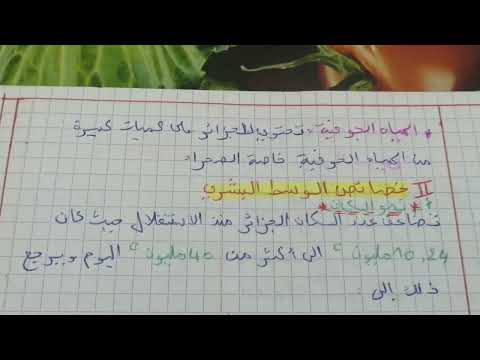 * المياه الجوفية: تحتوي الجزائر على كميات كبيرة
من المياه الجوفية خاصة الصحراء
II خصائص الوسط البشري
* نمو السكان:
تضاعف عدد السكان الجزائر منذ الاستقلال حيث كان
10,24 مليون ن الى أكثر من 40 مليون ن اليوم ويرجع
ذلك إلى: